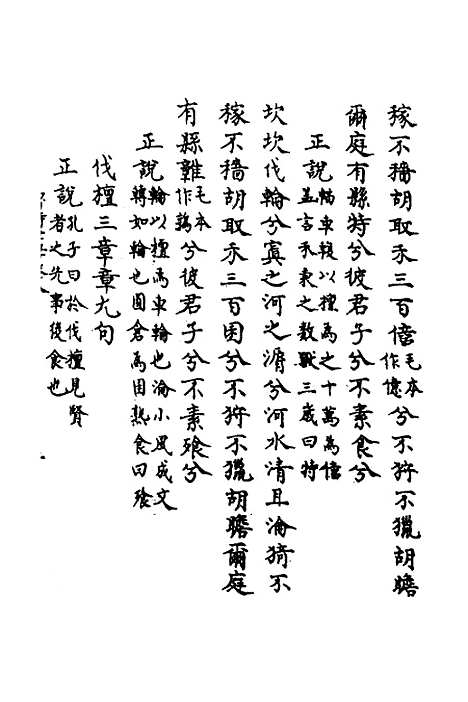 稼不穡胡取禾三百倍毛本作億兮不狩不獵胡瞻
爾庭有縣特兮彼君子兮不素食兮
正說輻車輹以檀為之十萬為倍
蓋言禾秉之數獸三歲曰特
坎坎伐輪兮寘之河之漘兮河水清且淪猗不
稼不穡胡取禾三百囷兮不狩不獵胡瞻爾庭
有縣雜毛本作鶉兮彼君子兮不素飧兮
正說輪以檀為車輪也淪小風成文
轉如輪也圓倉為囷熟食曰飧
伐檀三章章九句
正說孔子曰於伐檀見賢
者之先事後食也